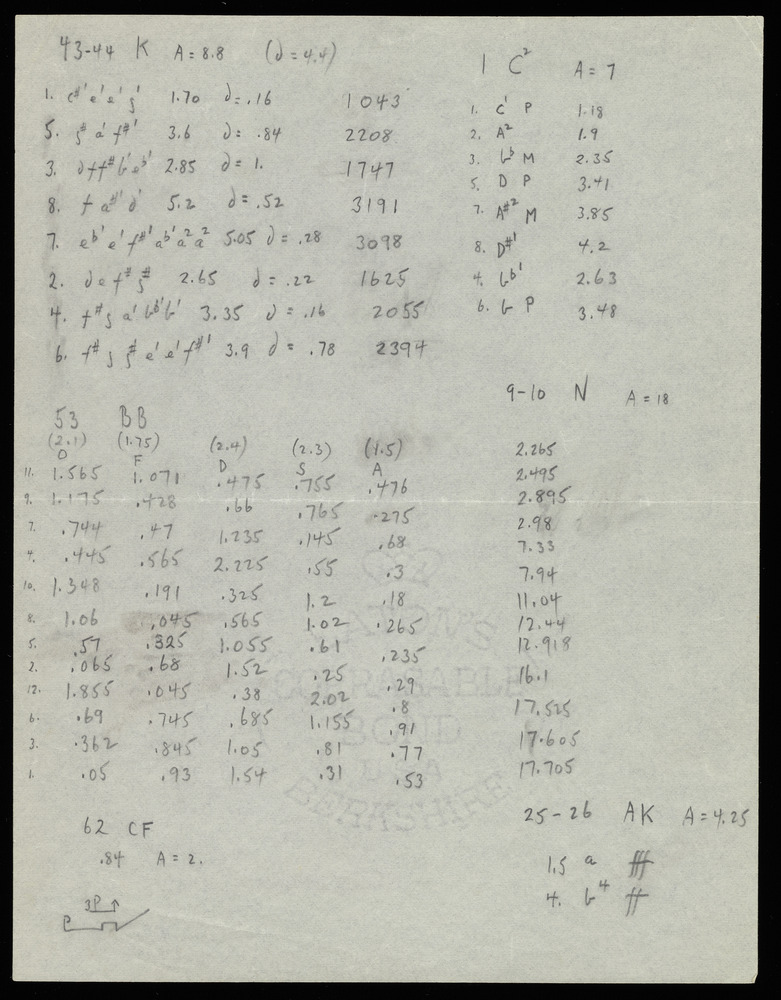 43-44 K A = 8.8 (d = 4.4)
1. c#' e' e' g' 1.70 d = .16 1043
5. g# a' f#' 3.6 d = .84 2208
3. d f f# b' eb' 2.85 d = 1. 1747
8. f a#' d' 5.2 d = .52 3191
7. eb' e' f#' ab' a² a² 5.05 d = .28 3098
2. d e f# g# 2.65 d = .22 1625
4. f# g a' bb' b' 3.35 d = .16 2055
6. f# g g# e' e' f#' 3.9 d = .78 2394
1 C² A = 7
1. C' P 1.18
2. A² 1.9
3. Gb M 2.35
5. D P 3.41
7. A#² M 3.85
8. D#' 4.2
4. Gb' 2.63
6. G P 3.48
53 BB
(2.1) (1.75) (2.4) (2.3) (1.5)
O F D S A
11. 1.565 1.071 .475 .755 .476
9. 1.175 .428 .66 .765 .275
7. .744 .47 1.235 .145 .68
4. .445 .565 2.225 .55 .3
10. 1.348 .191 .325 1.2 .18
8. 1.06 .045 .565 1.02 .265
5. .57 .325 1.055 .61 .235
2. .065 .68 1.52 .25 .29
12. 1.855 .045 .38 2.02 .8
6. .69 .745 .685 1.155 .91
3. .362 .845 1.05 .81 .77
1. .05 .93 1.54 .31 .53
9-10 N A = 18
2.265
2.495
2.895
2.98
7.33
7.94
11.04
12.44
12.918
16.1
17.525
17.605
17.705
62 CF
.84 A = 2.
3P ↑
P
25-26 AK A = 4.25
1.5 a fff
4. b⁴ ff
BOND
USA
BERKSHIRE